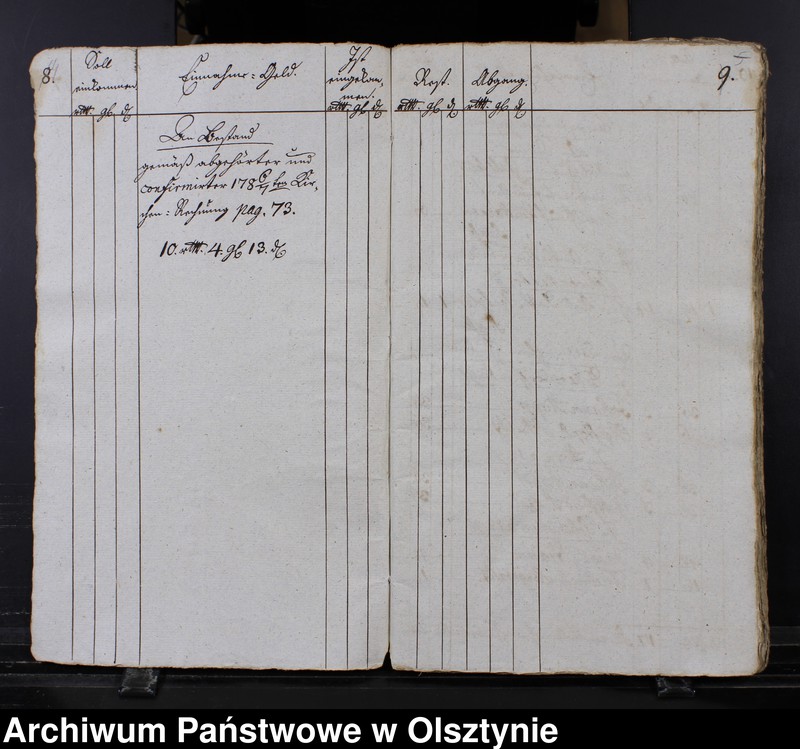 8.
Soll
einkommen
rthl. gl. d.
Einnahme: Geld.
Ist
eingekom-
men.
rthl. gl. d.
Rest.
rthl. gl. d.
Abgang.
rthl. gl. d.
9.
An Bestand
gemäß abgehörter und
confirmirter 178 6/7 ten Kir-
chen: Rechnung pag. 73.
10. rthl. 4. gl. 13. d.
Archiwum Państwowe w Olsztynie